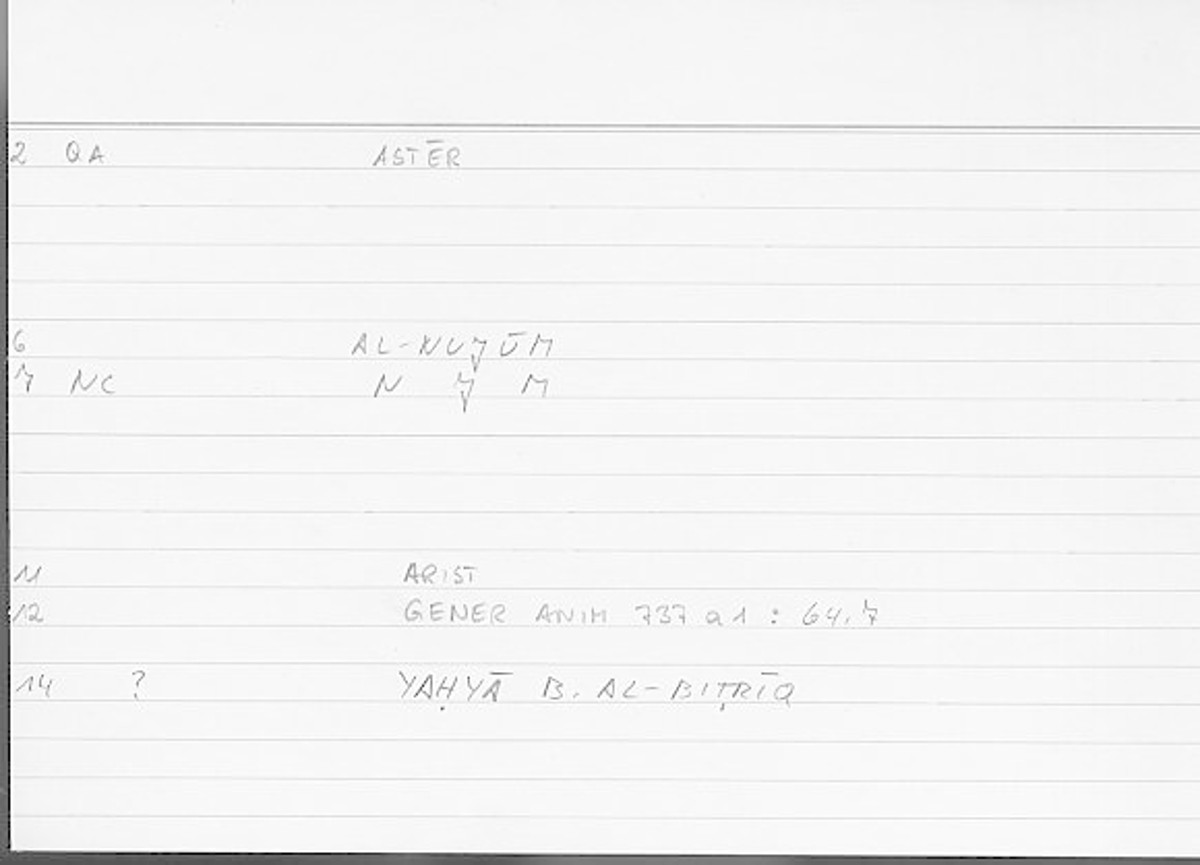 2 QA ASTĒR
6 AL-NUǦŪM
7 NC N Ǧ M
11 ARIST
12 GENER ANIM 737 a 1 : 64.7
14 ? YAḤYĀ B. AL-BIṬRĪQ